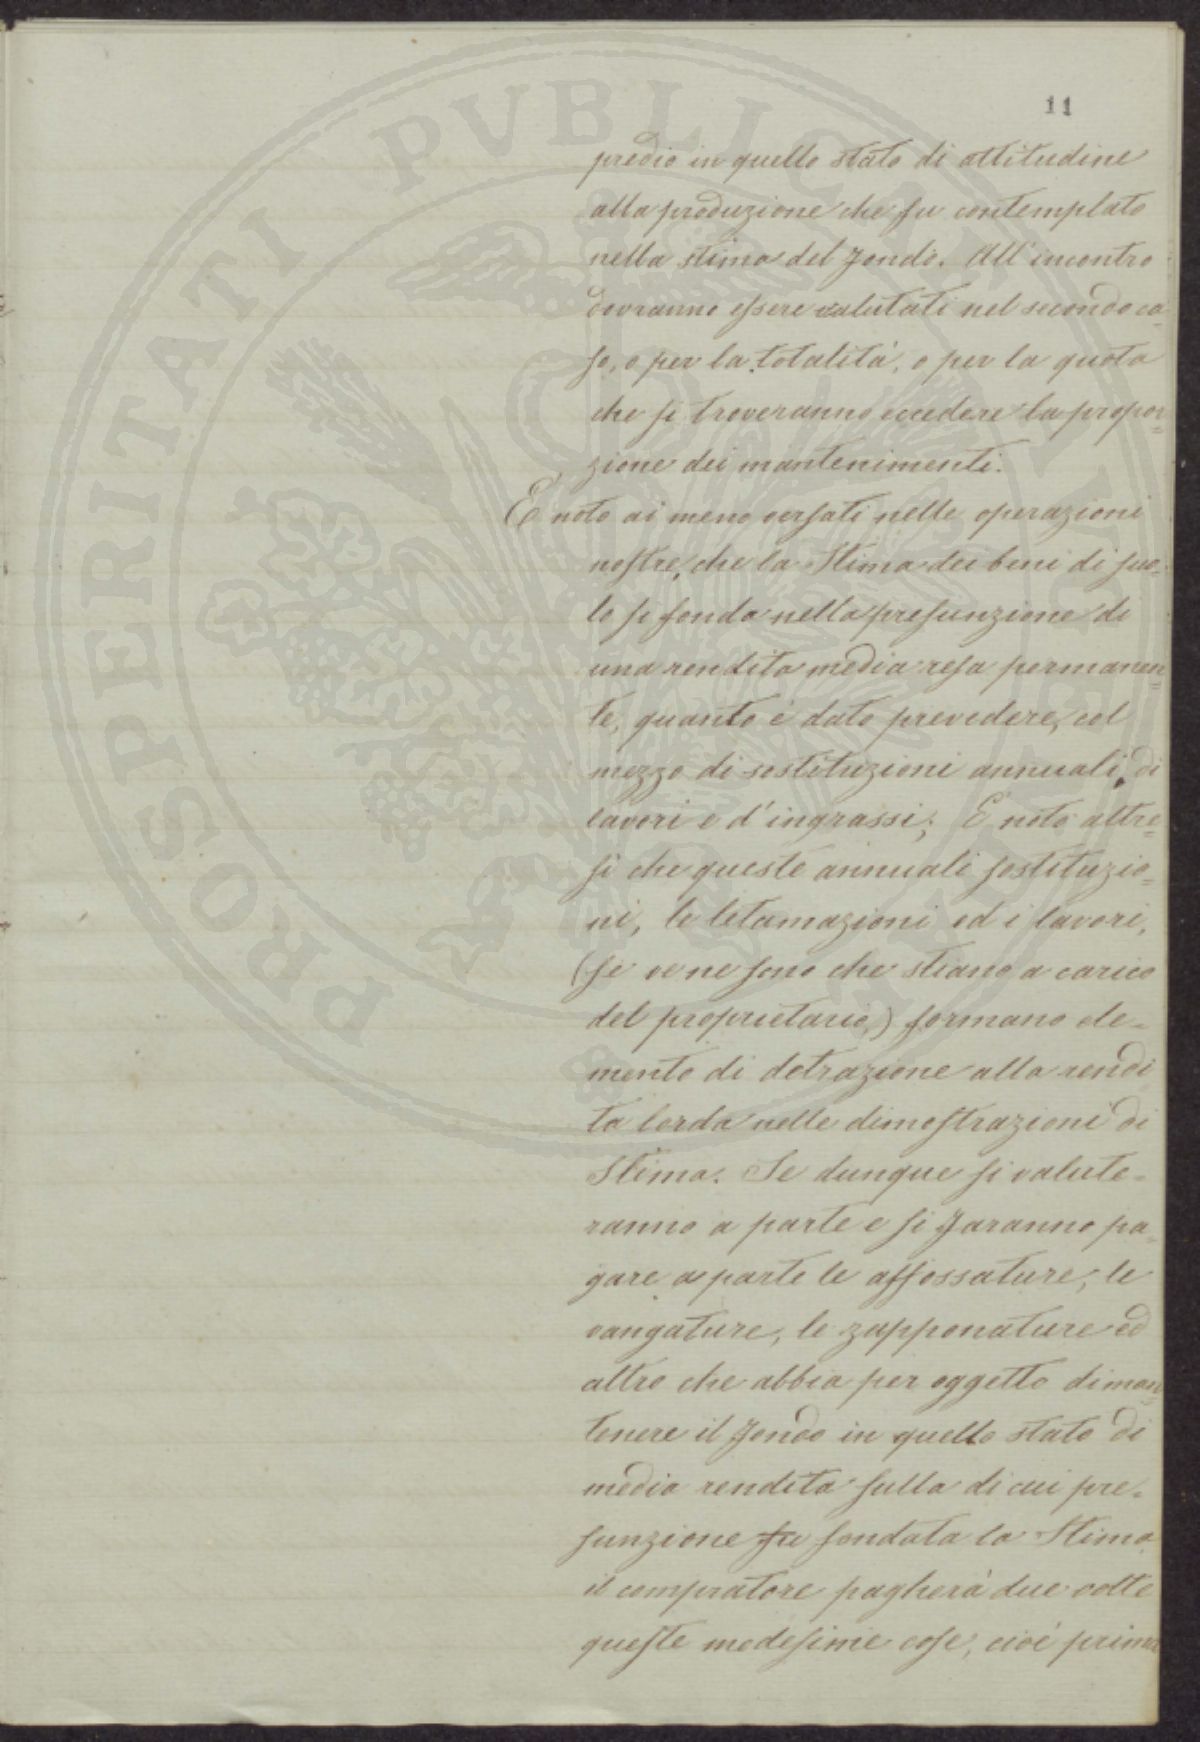 11
predio in quello stato di attitudine
alla produzione che fu contemplato
nella stima del fondo. All'incontro
dovranno essere valutati nel secondo ca-
so, o per la totalità, o per la quota
che si troveranno eccedere la propor=
zione dei mantenimenti.
È noto ai meno versati nelle operazioni
nostre, che la Stima dei beni di suo-
lo si fonda nella presunzione di
una rendita media resa permanen=
te, quanto è dato prevedere, col
mezzo di sostituzioni annuali, di
lavori e d'ingrassi; È noto altre=
sì che queste annuali sostituzio=
ni, le letamazioni ed i lavori,
(se ve ne sono che stiano a carico
del proprietario,) formano ele-
mento di detrazione alla rendi
ta lorda nelle dimostrazioni di
Stima. Se dunque si valute-
ranno a parte e si faranno pa-
gare a parte le affossature, le
vangature, le zapponature ed
altro che abbia per oggetto di man=
tenere il fondo in quello stato di
media rendita sulla di cui pre-
sunzione fu fondata la Stima
il compratore pagherà due volte
queste medesime cose, cioè prima
PROSPERITATI PVBLICAE AVGENDAE